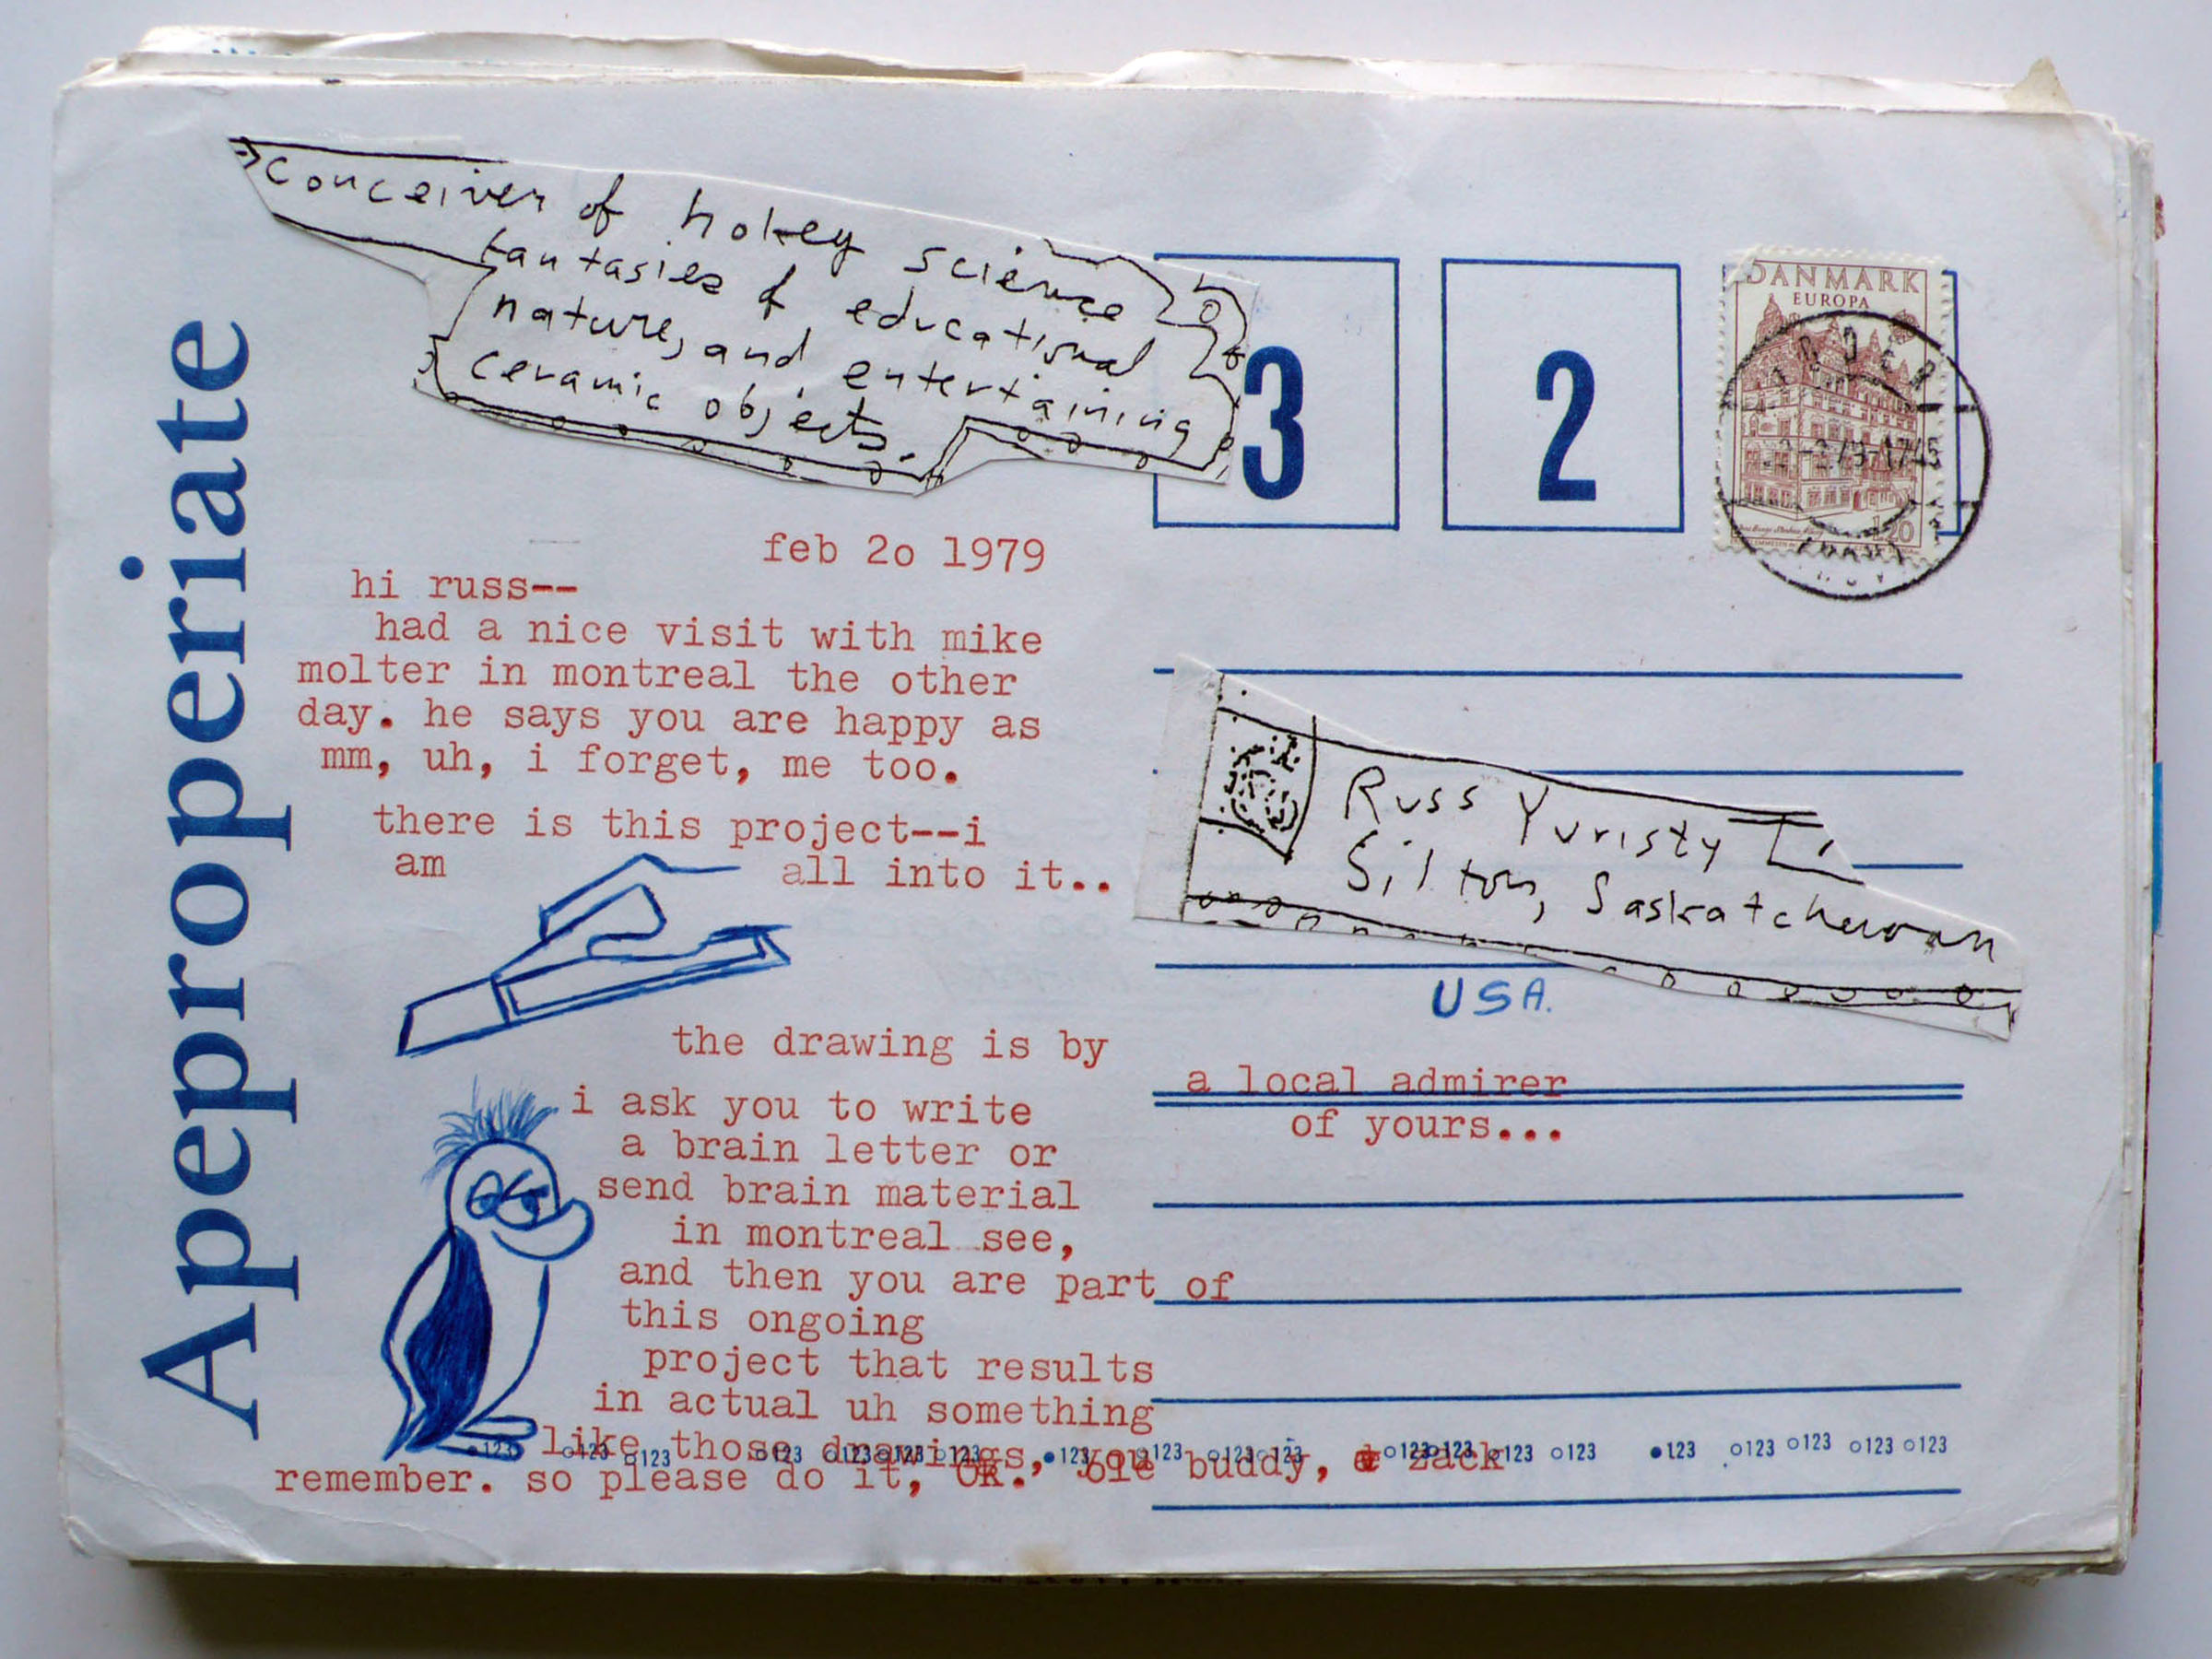 Apeproperiate
conceiver of hokey science
fantasies of educational
nature, and entertaining
ceramic objects.
3 2
DANMARK
EUROPA
120
feb 2o 1979
hi russ--
had a nice visit with mike
molter in montreal the other
day. he says you are happy as
mm, uh, i forget, me too.
there is this project--i
am all into it..
Russ Yuristy
Silton, Saskatchewan
USA.
the drawing is by
a local admirer
of yours...
i ask you to write
a brain letter or
send brain material
in montreal see,
and then you are part of
this ongoing
project that results
in actual uh something
like those drawings, you
remember. so please do it, OK. ole buddy, zack
123 0123 0123 0123 0123 0123 0123 123 0123 0123 0123 0123 0123 0123 0123 123 0123 0123 0123 0123